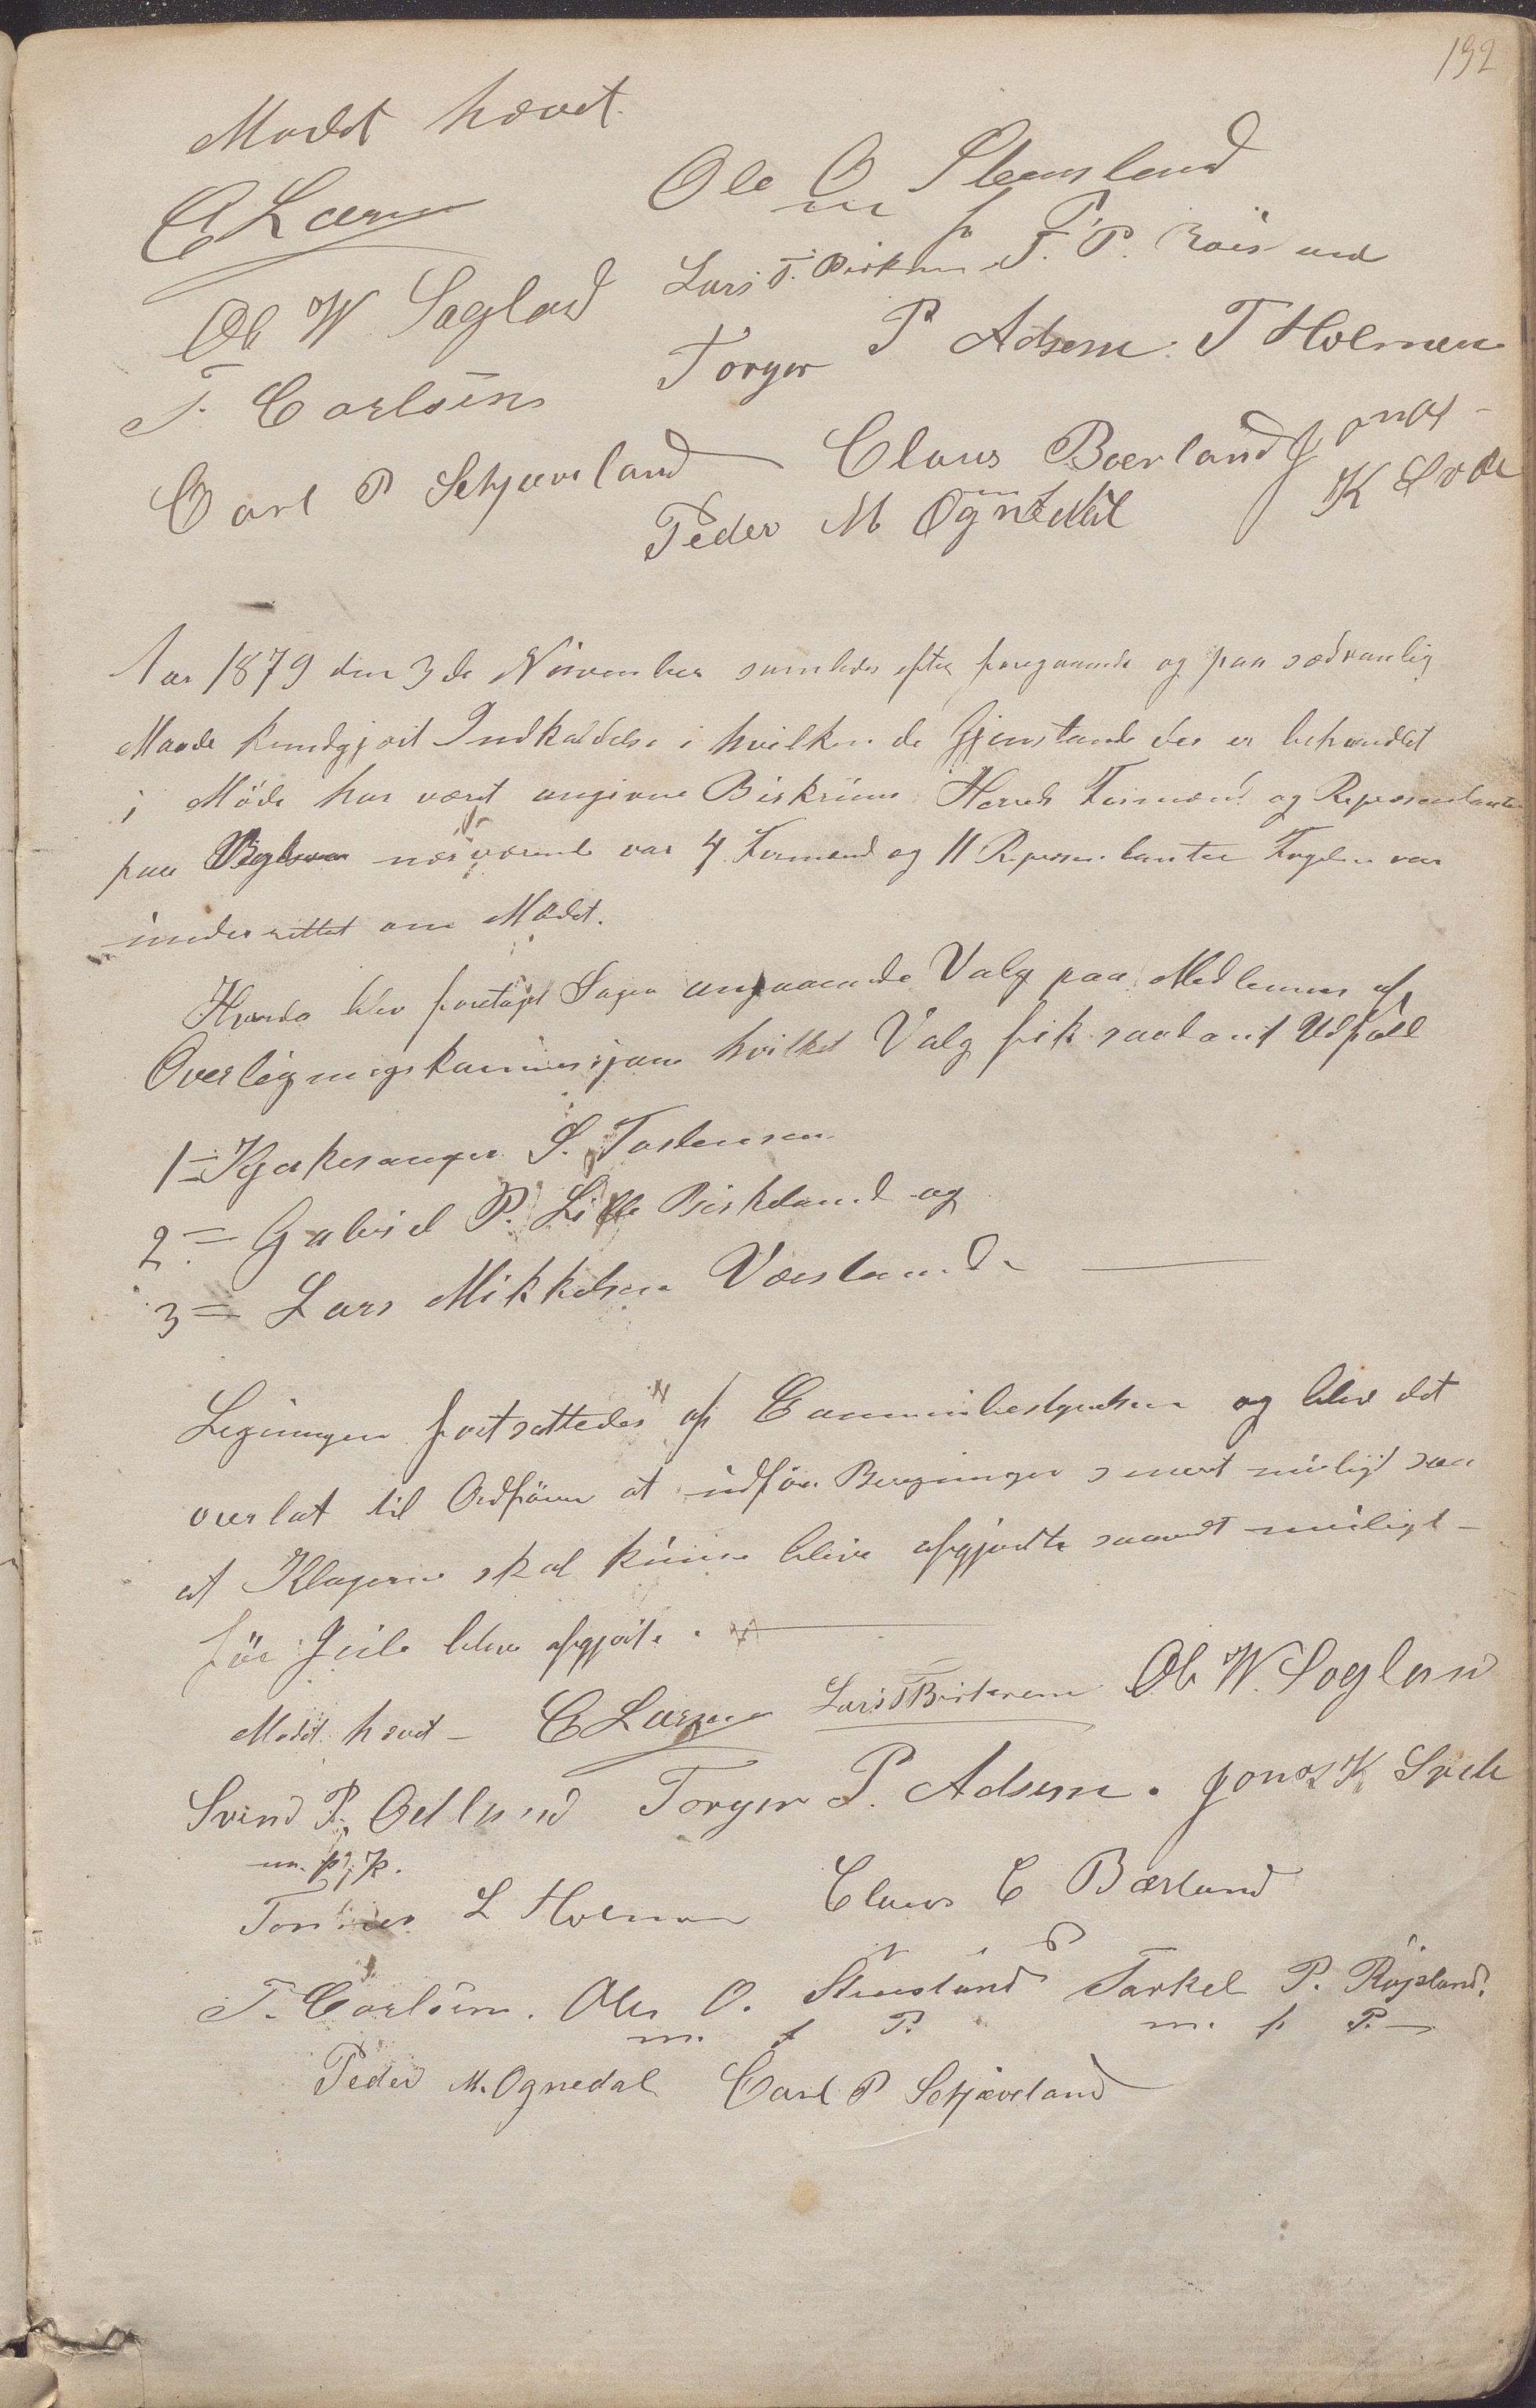 192
Mødet hævet.
Ole O Steensland
C Læru
Lars T. Birkrem T. P. Röisland
Ole W. Saglad
Torger P Adsem. T Holmen
T. Carlsen
Carl P Schjæveland Claus Bærland Jonas
K Svele
Peder M Ognedal
Aar 1879 den 3de November samledes efter foregaaende og paa sædvanlig
Maade kundgjort Indkaldelse i hvilken de Gjenstande der er behandlet
i Møde har været angivne Birkrims Herreds Formænd og Repræsentanter
paa nærværende var 4 Formænd og 11 Repræsentanter Fogden var
underrettet om Mødet.
Hvorda blev foretaget Sagen angaaende Valg paa Medlemmer af
Overligningskommisjonen hvilket Valg fik saadant Udfall
1 = Kjerkesanger S. Tostensen
2 = Gabriel P. Lille Birkeland og
3 = Lars Mikkelsen Væsland.
Ligningen fortsattedes af Communebestyrelsen og blev det
overlat til Ordförer at udföre Beregninger snart muligt saa
at Klagerne skal kunne blive afgjordte saavidt muligt
för Juile blive afgjort.
Mödet hævet - C Læru Lars T Birkrem Ole W. Sogland
Svend P. Oetland Torger P. Adsem. Jonas K Svele
m. p. p.
L Holmen Claus C Bærland
T. Carlsen. Ole O. Steensland Tarkel P. Röjsland.
m. f P. m. f. P.
Peder M. Ognedal Carl P Schjæveland